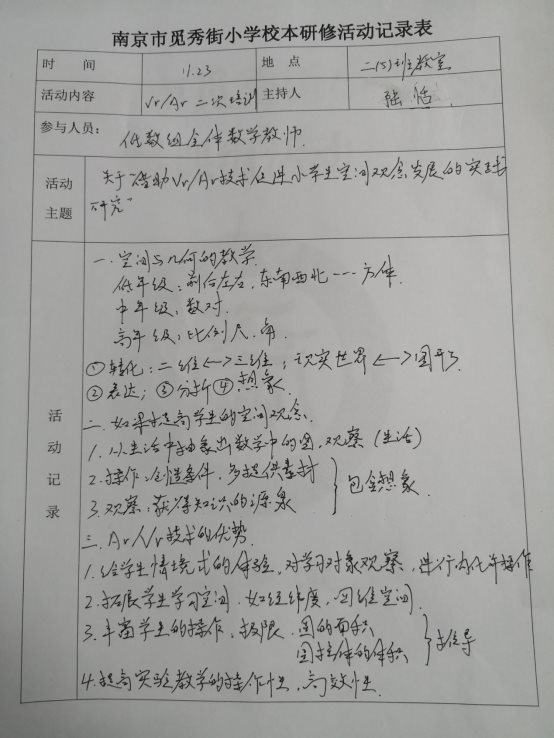 南京市觅秀街小学校本研修活动记录表
时 间 11.23 地 点 二(5)班教室
活动内容 Vr/Ar 二次培训 主持人 陆恬
参与人员: 低数组全体数学教师
活动主题 关于“借助Vr/Ar技术促进小学生空间观念发展的实践
研究”
活动记录
一.空间与几何的教学
低年级:前后左右,东南西北……方体
中年级:数对
高年级:比例尺.角
①转化:二维<->三维;现实世界<->图形
②表达;③分析④想象
二.如果提高学生的空间观念
1.从生活中抽象出数学中的图,观察(生活)
2.操作:创造条件,多提供素材
3.观察:获得知识的源泉
包含想象
三.Ar/Vr技术的优势
1.给学生情境式的体验,对学习对象观察,进行内化
2.拓展学生学习空间.如经纬度,四维空间
3.丰富学生的操作.极限.圆的面积
圆柱体的体积
推导
4.提高实验教学的操作性,高效性